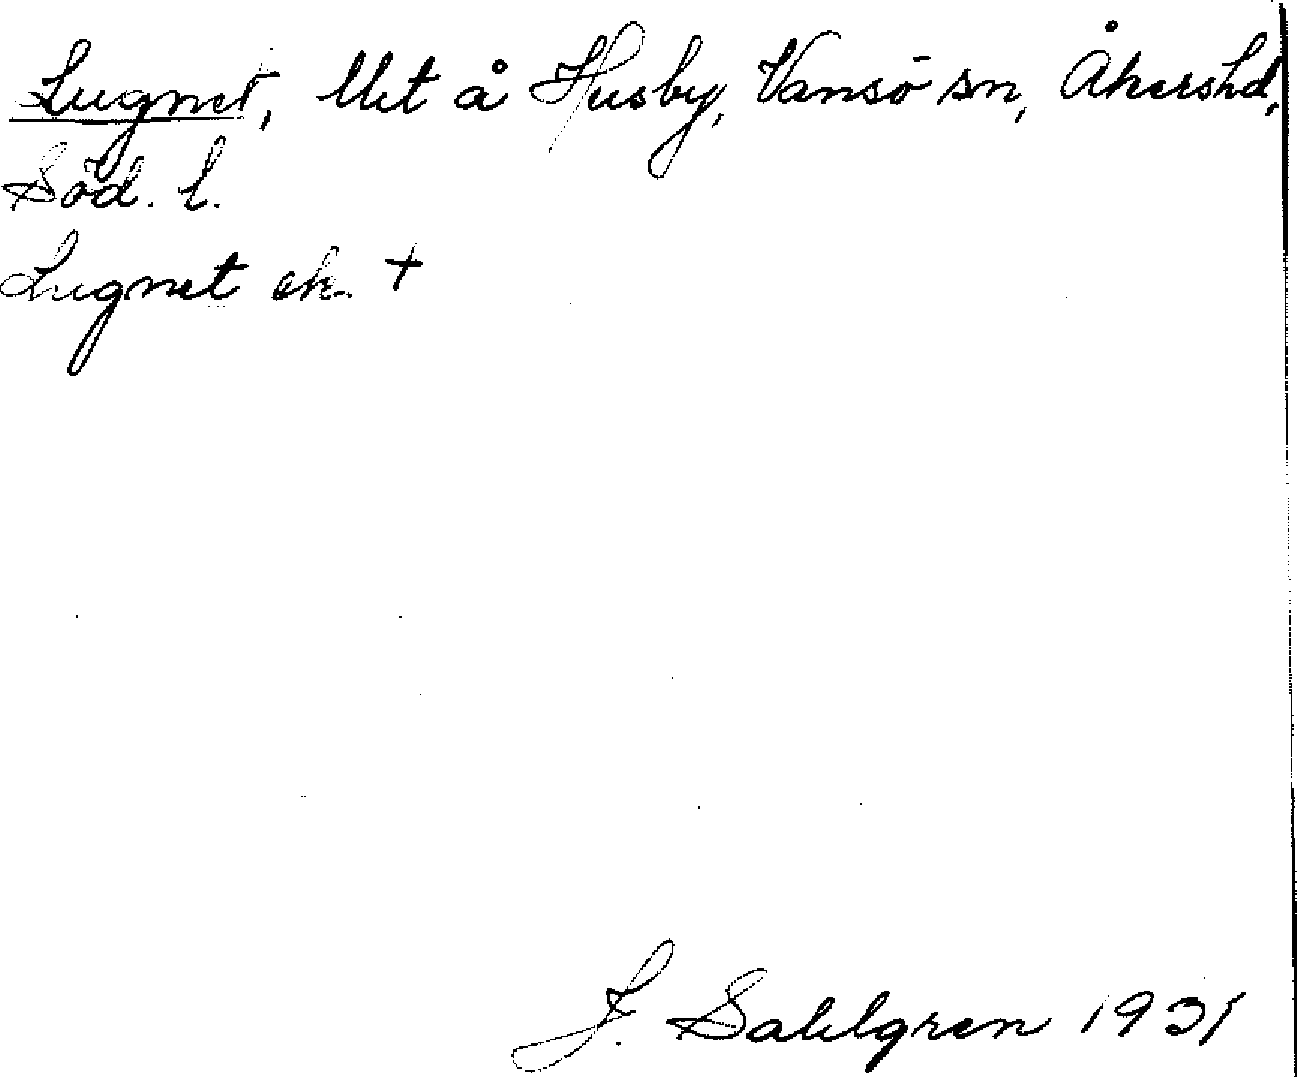 Lugnet, lht å Husby, Vansö sn, Åkershd,
Söd. l.
Lugnet ek. +
J. Sahlgren 1931